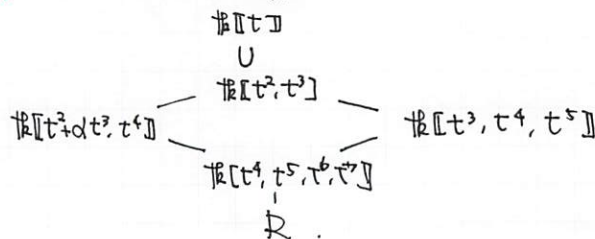 𝕜[[t]]
∪
𝕜[[t², t³]]
𝕜[[t²+αt³, t⁴]] 𝕜[[t³, t⁴, t⁵]]
𝕜[[t⁴, t⁵, t⁶, t⁷]]
R.